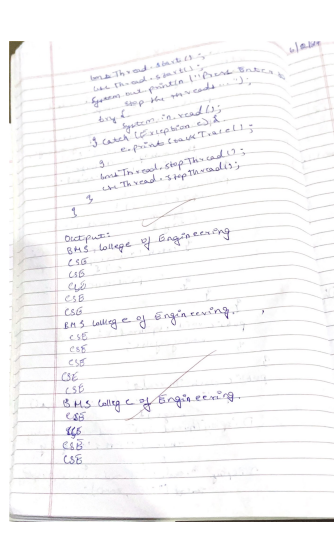 bmsThread.start();
cseThread.start();
System.out.println("Press Enter to
stop the threads...");
try {
System.in.read();
} catch (Exception e) {
e.printStackTrace();
}
bmsThread.stopThread();
cseThread.stopThread();
}
}
Output:
BMS College of Engineering
CSE
CSE
CSE
CSE
CSE
BMS College of Engineering.
CSE
CSE
CSE
CSE
CSE
BMS College of Engineering.
CSE
CSE
CSE
CSE